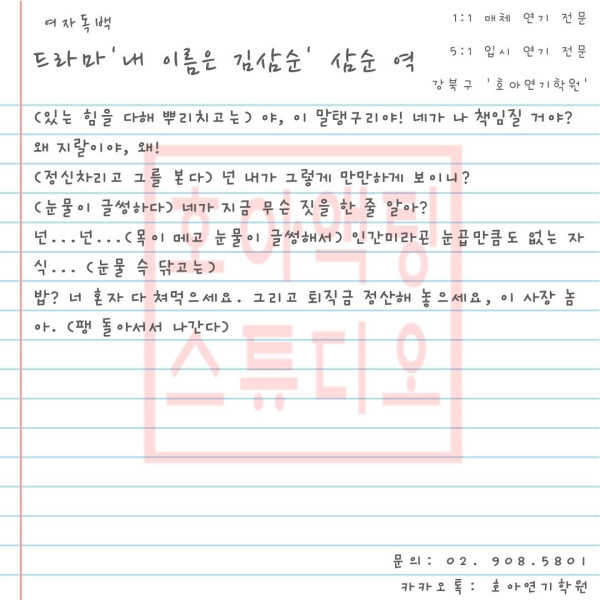 여자독백
1:1 매체 연기 전문
드라마'내 이름은 김삼순' 삼순 역
5:1 입시 연기 전문
강북구 '호아연기학원'
(있는 힘을 다해 뿌리치고는) 야, 이 말탱구리야! 네가 나 책임질 거야?
왜 지랄이야, 왜!
(정신차리고 그를 본다) 넌 내가 그렇게 만만하게 보이니?
(눈물이 글썽하다) 네가 지금 무슨 짓을 한 줄 알아?
넌...넌...(목이 메고 눈물이 글썽해서) 인간미라곤 눈꼽만큼도 없는 자
식... (눈물 수 닦고는)
밥? 너 혼자 다 쳐먹으세요. 그리고 퇴직금 정산해 놓으세요, 이 사장 놈
아. (팽 돌아서서 나간다)
호아액팅
스튜디오
문의: 02. 908.5801
카카오톡: 호아연기학원